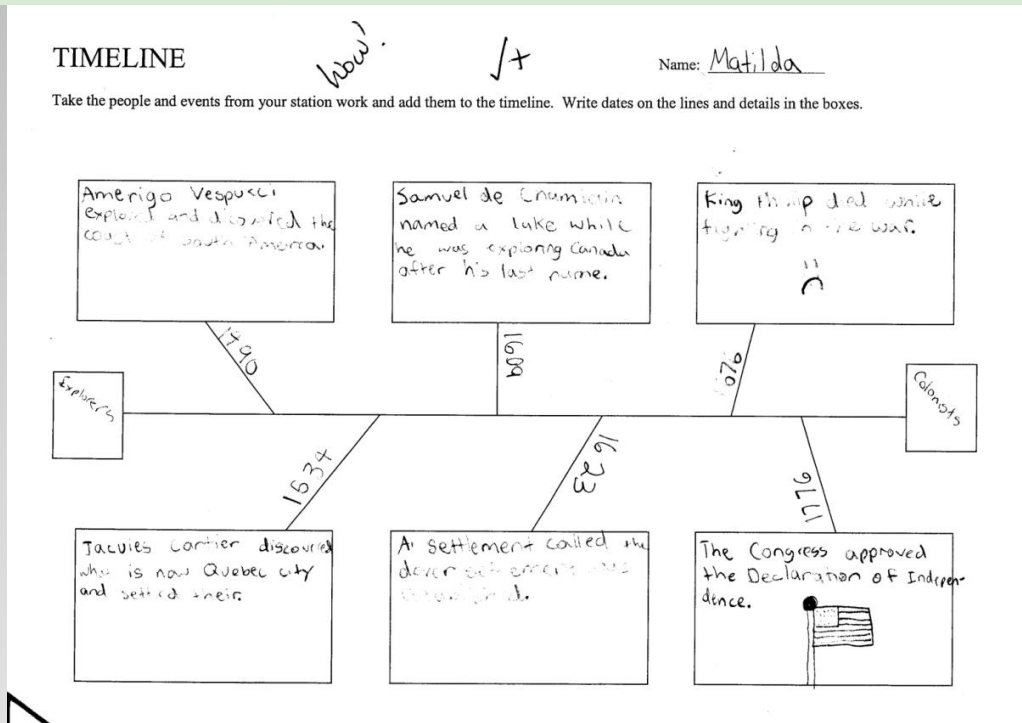 TIMELINE
wow!
√+
Name: Matilda
Take the people and events from your station work and add them to the timeline. Write dates on the lines and details in the boxes.
Amerigo Vespucci
explored and the
coast of south America
Samuel de
named a lake while
he was exploring Canada
after his last name.
King died while
in war.
:(
1490
1609
Explorers
Colonists
1534
1623
1776
Jacuies Cartier discovered
is now Quebec city
and their
A settlement called the
dover
The Congress approved
the Declaration of Indepen-
dence.